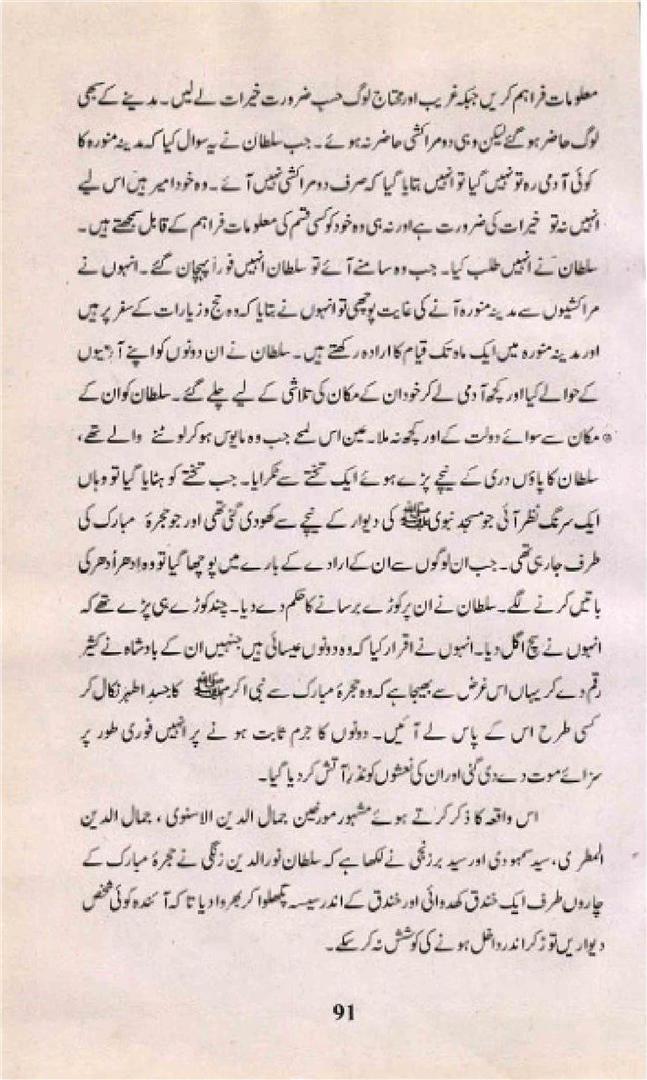 معلومات فراہم کریں جبکہ غریب اور محتاج لوگ حسب ضرورت خیرات لے لیں۔ مدینے کے سبھی
لوگ حاضر ہو گئے لیکن وہی دو مراکشی حاضر نہ ہوئے۔ جب سلطان نے یہ سوال کیا کہ مدینہ منورہ کا
کوئی آدمی رہ تو نہیں گیا تو انہیں بتایا گیا کہ صرف دو مراکشی نہیں آئے۔ وہ خود امیر ہیں اس لیے
انہیں نہ تو خیرات کی ضرورت ہے اور نہ ہی وہ خود کو کسی قسم کی معلومات فراہم کے قابل سمجھتے ہیں۔
سلطان نے انہیں طلب کیا۔ جب وہ سامنے آئے تو سلطان انہیں فوراً پہچان گئے۔ انہوں نے
مراکشیوں سے مدینہ منورہ آنے کی غایت پوچھی تو انہوں نے بتایا کہ وہ حج و زیارات کے سفر پر ہیں
اور مدینہ منورہ میں ایک ماہ تک قیام کا ارادہ رکھتے ہیں۔ سلطان نے ان دونوں کو اپنے آدمیوں
کے حوالے کیا اور کچھ آدمی لے کر خود ان کے مکان کی تلاشی کے لیے چلے گئے۔ سلطان کو ان کے
مکان سے سوائے دولت کے اور کچھ نہ ملا۔ عین اس لمحے جب وہ مایوس ہو کر لوٹنے والے تھے،
سلطان کا پاؤں دری کے نیچے پڑے ہوئے ایک تختے سے ٹکرایا۔ جب تختے کو ہٹایا گیا تو وہاں
ایک سرنگ نظر آئی جو مسجد نبوی ﷺ کی دیوار کے نیچے سے کھودی گئی تھی اور جو حجرۂ مبارک کی
طرف جا رہی تھی۔ جب ان لوگوں سے ان کے ارادے کے بارے میں پوچھا گیا تو وہ اِدھر اُدھر کی
باتیں کرنے لگے۔ سلطان نے ان پر کوڑے برسانے کا حکم دے دیا۔ چند کوڑے ہی پڑے تھے کہ
انہوں نے سچ اگل دیا۔ انہوں نے اقرار کیا کہ وہ دونوں عیسائی ہیں جنہیں ان کے بادشاہ نے کثیر
رقم دے کر یہاں اس غرض سے بھیجا ہے کہ وہ حجرۂ مبارک سے نبی اکرم ﷺ کا جسدِ اطہر نکال کر
کسی طرح اس کے پاس لے آئیں۔ دونوں کا جرم ثابت ہونے پر انہیں فوری طور پر
سزائے موت دے دی گئی اور ان کی نعشوں کو نذرِ آتش کر دیا گیا۔
اس واقعہ کا ذکر کرتے ہوئے مشہور مورخین جمال الدین الاسنوی، جمال الدین
المطری، سید سمہودی اور سید برزنجی نے لکھا ہے کہ سلطان نور الدین زنگی نے حجرۂ مبارک کے
چاروں طرف ایک خندق کھدوائی اور خندق کے اندر سیسہ پگھلوا کر بھروا دیا تاکہ آئندہ کوئی شخص
دیواریں توڑ کر اندر داخل ہونے کی کوشش نہ کر سکے۔
91